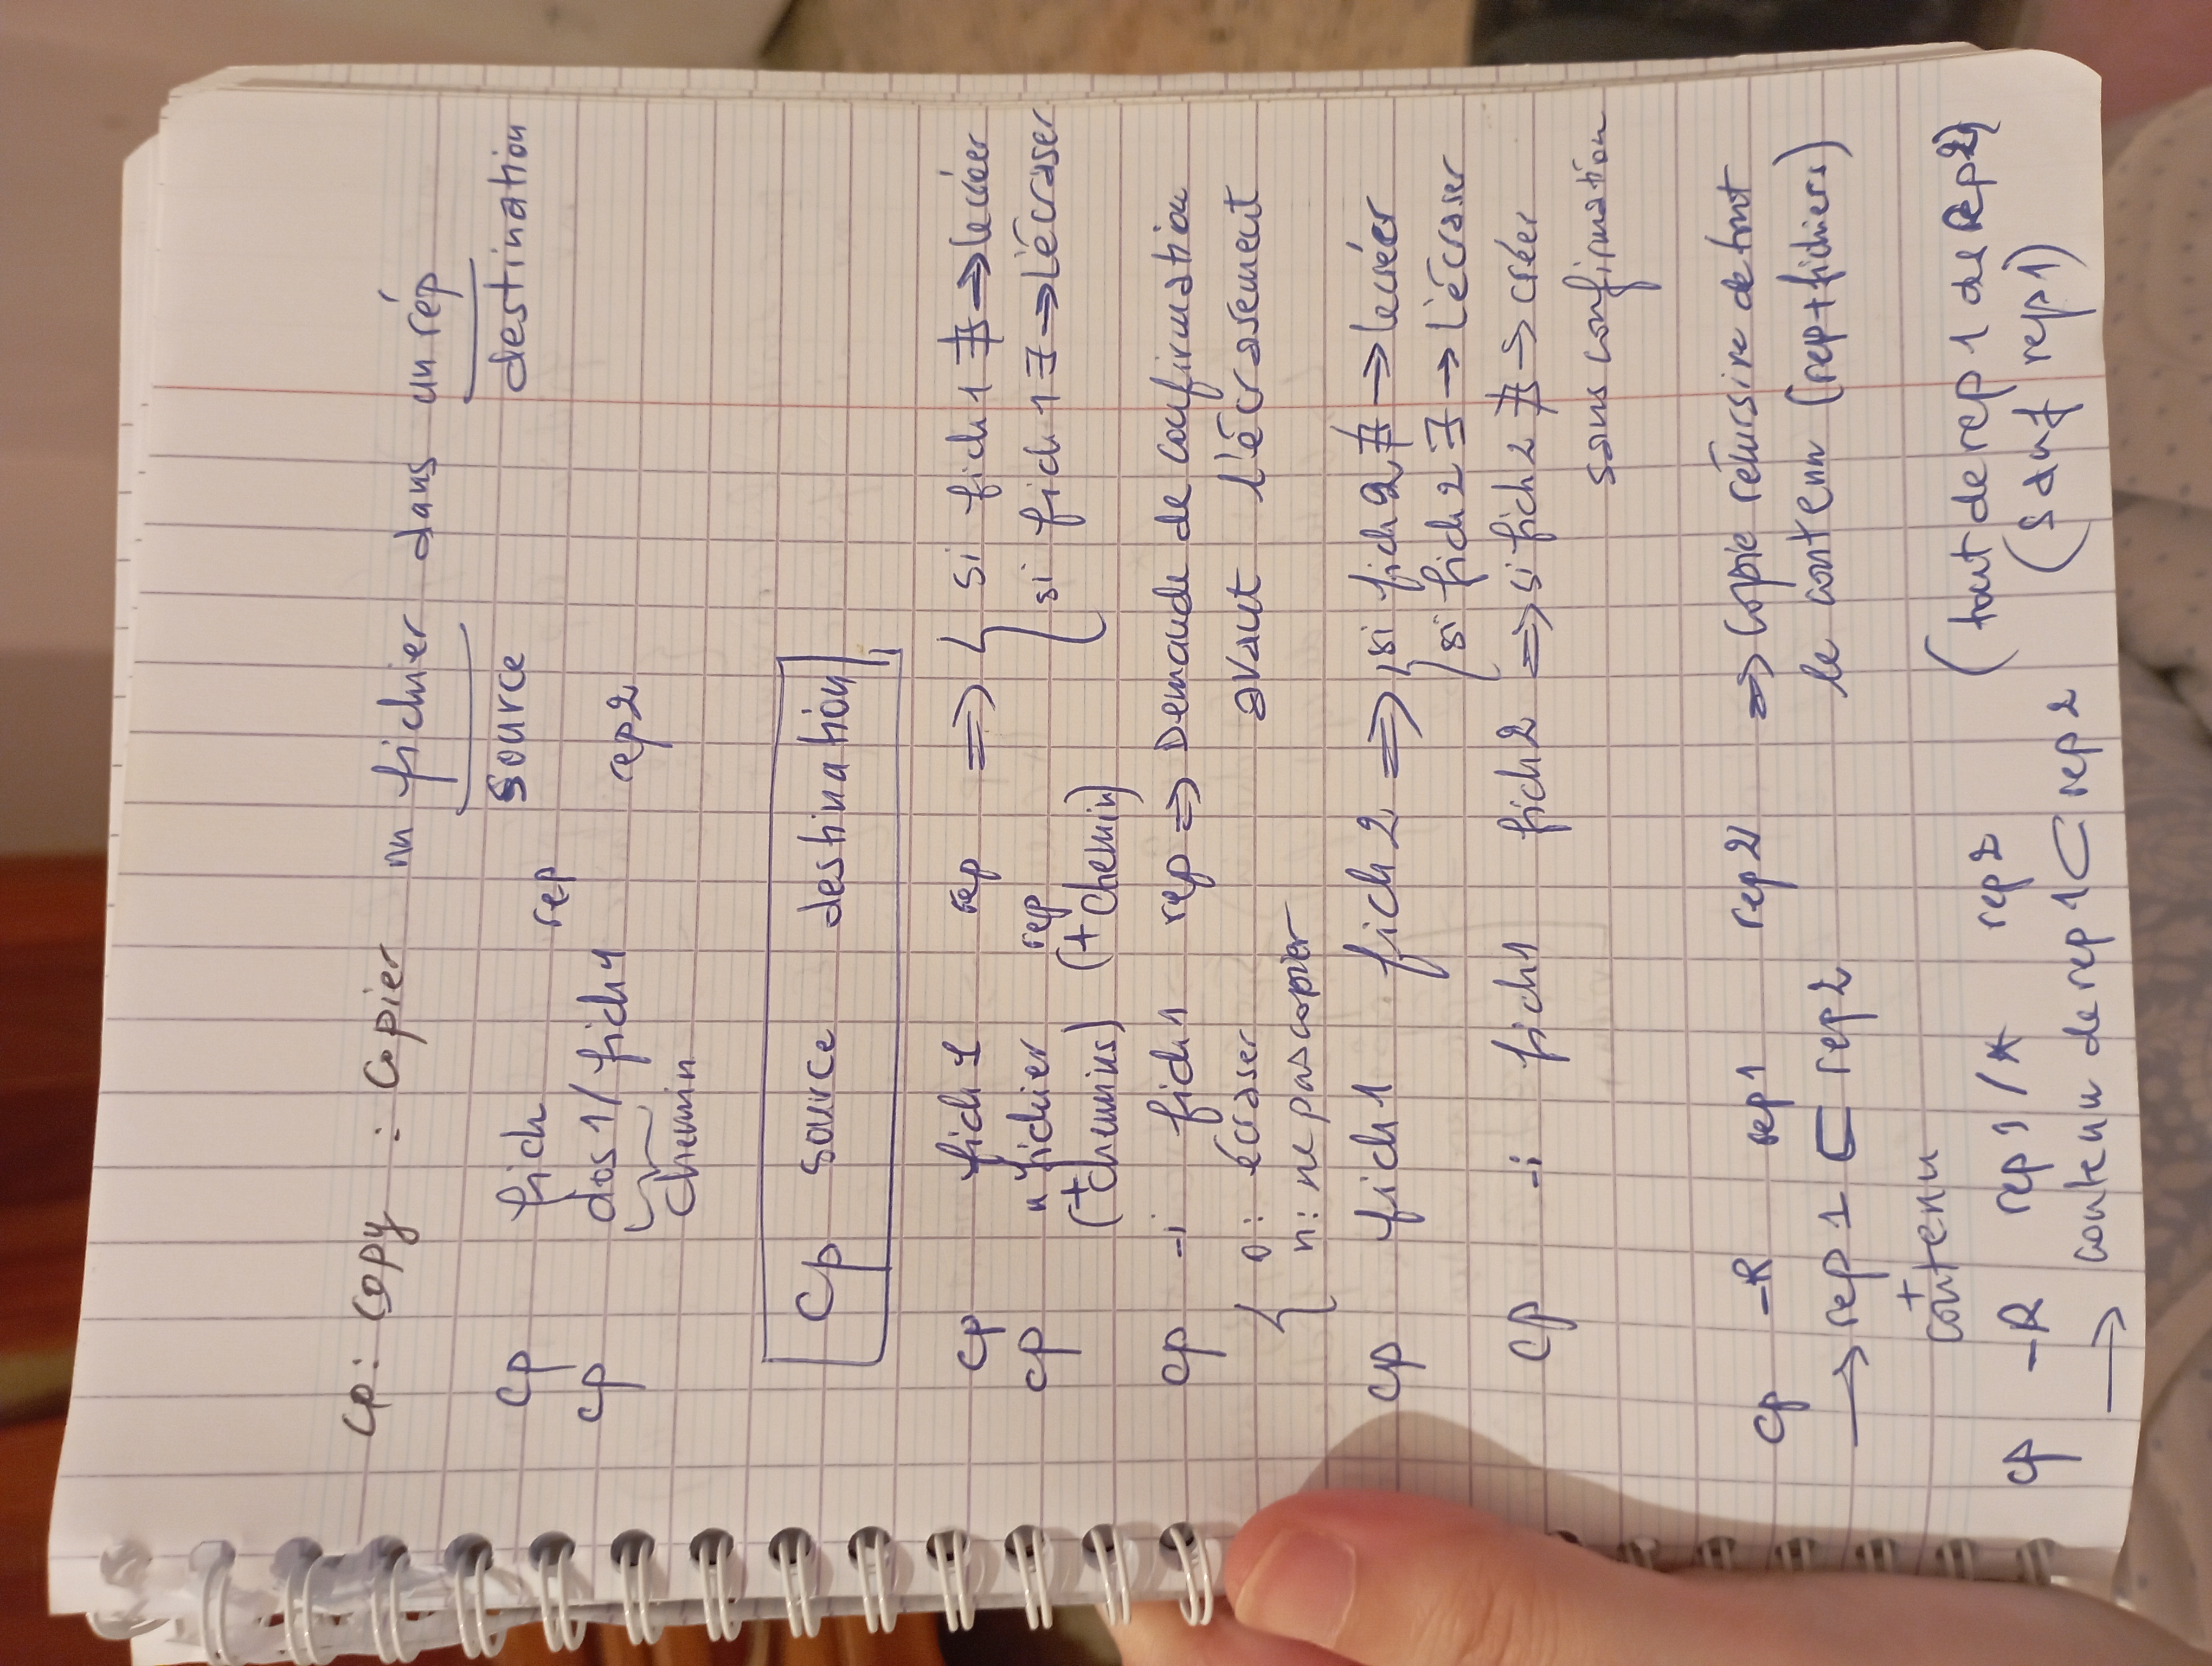 cp : copy : Copier un fichier dans un rép
source destination
cp fich rep
cp dos1/fich1 rep2
chemin
cp source destination
cp fich1 rep ⇒ { si fich1 ∄ → le créer
cp n fichier rep si fich1 ∃ → L'écraser
(+ chemins) (+ chemin)
cp -i fich1 rep ⇒ Demande de confirmation
{ o : écraser avant l'écrasement
n : ne pas copier
cp fich1 fich2 ⇒ { si fich2 ∄ → le créer
si fich2 ∃ → L'écraser
cp -i fich1 fich2 ⇒ si fich2 ∄ → créer
sans confirmation
cp -R rep1 rep2 ⇒ Copie récursive de tout
→ rep1 ⊂ rep2 le contenu (rep+fichiers)
+
contenu
cp -R rep1/* rep2 (tout de rep1 ds Rep2)
(sauf rep1)
→ contenu de rep1 ⊂ rep2